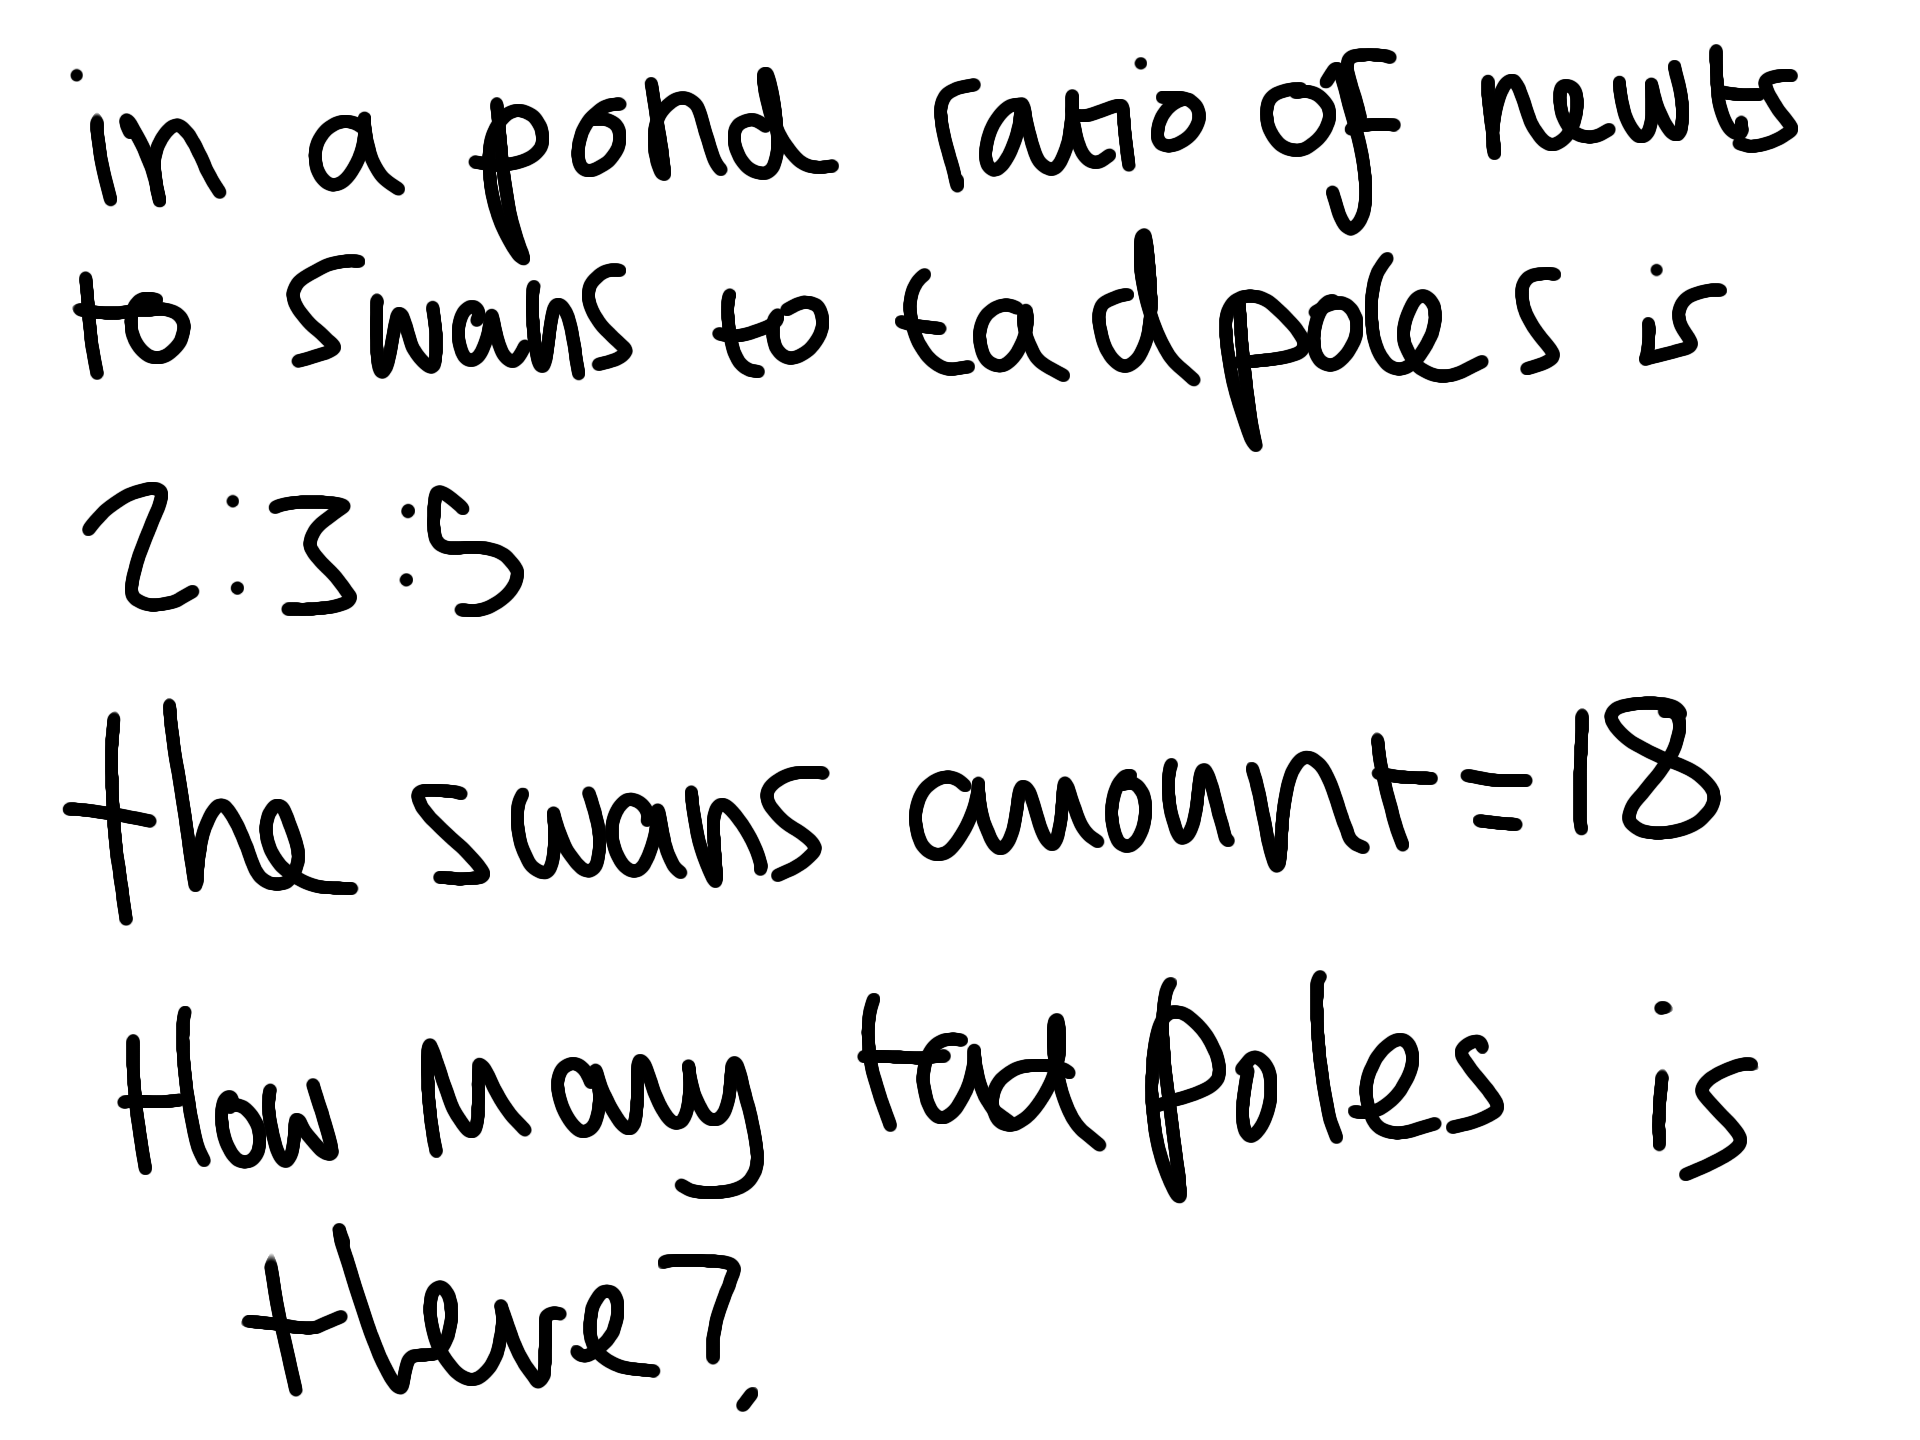 in a pond ratio of newts
to swans to tadpoles is
2:3:5
the swans amount=18
How many tadpoles is
there?